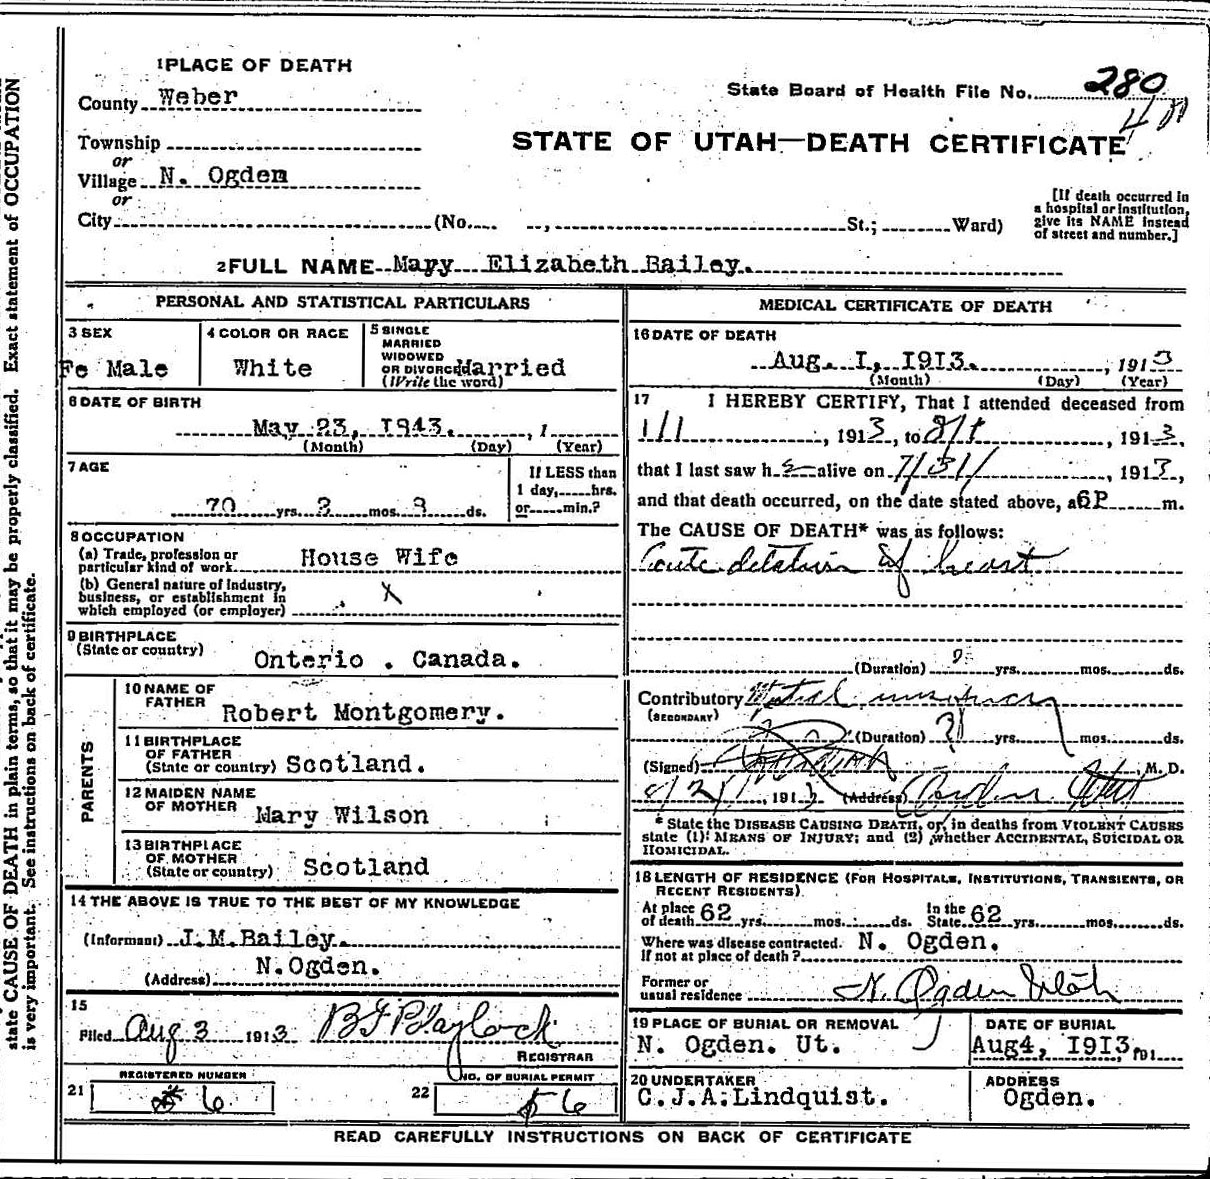 state CAUSE OF DEATH in plain terms, so that it may be properly classified. Exact statement of OCCUPATION
is very important. See instructions on back of certificate.
1 PLACE OF DEATH
County Weber
State Board of Health File No. 280
Township
or
STATE OF UTAH—DEATH CERTIFICATE
Village N. Ogden
or
City (No. , St.; Ward)
[If death occurred in
a hospital or institution,
give its NAME instead
of street and number.]
2 FULL NAME Mary Elizabeth Bailey.
PERSONAL AND STATISTICAL PARTICULARS
3 SEX
Fe Male
4 COLOR OR RACE
White
5 SINGLE
MARRIED
WIDOWED
OR DIVORCED Married
(Write the word)
6 DATE OF BIRTH
May 23, 1943. , 1
(Month) (Day) (Year)
7 AGE
70 yrs. mos. ds.
If LESS than
1 day, hrs.
or min.?
8 OCCUPATION
(a) Trade, profession or
particular kind of work House Wife
(b) General nature of industry,
business, or establishment in
which employed (or employer) X
9 BIRTHPLACE
(State or country)
Onterio . Canada.
PARENTS
10 NAME OF
FATHER
Robert Montgomery.
11 BIRTHPLACE
OF FATHER
(State or country) Scotland.
12 MAIDEN NAME
OF MOTHER Mary Wilson
13 BIRTHPLACE
OF MOTHER
(State or country) Scotland
14 THE ABOVE IS TRUE TO THE BEST OF MY KNOWLEDGE
(Informant) J.M.Bailey.
(Address) N.Ogden.
15
Filed Aug 3 1913
REGISTRAR
REGISTERED NUMBER
NO. OF BURIAL PERMIT
21 6
22 56
MEDICAL CERTIFICATE OF DEATH
16 DATE OF DEATH
Aug. I, I9I3. , 1913
(Month) (Day) (Year)
17 I HEREBY CERTIFY, That I attended deceased from
1/1 , 1913, to 8/1 , 1913,
that I last saw h e alive on 7/31/ , 1913,
and that death occurred, on the date stated above, at 6P m.
The CAUSE OF DEATH* was as follows:
Acute dilatation of heart
(Duration) yrs. mos. ds.
Contributory Mitral
(SECONDARY)
(Duration) yrs. mos. ds.
(Signed) , M. D.
8/2/ , 1913 (Address) Ogden Utah
* State the DISEASE CAUSING DEATH, or, in deaths from VIOLENT CAUSES
state (1) MEANS OF INJURY; and (2) whether ACCIDENTAL, SUICIDAL OR
HOMICIDAL.
18 LENGTH OF RESIDENCE (FOR HOSPITALS, INSTITUTIONS, TRANSIENTS, OR
RECENT RESIDENTS)
At place
of death 62 yrs. mos. ds.
In the
State 62 yrs. mos. ds.
Where was disease contracted. N. Ogden.
If not at place of death?
Former or
usual residence N. Ogden Utah
19 PLACE OF BURIAL OR REMOVAL
N. Ogden. Ut.
DATE OF BURIAL
Aug4, I9I3, 191
20 UNDERTAKER
C.J.A.Lindquist.
ADDRESS
Ogden.
READ CAREFULLY INSTRUCTIONS ON BACK OF CERTIFICATE